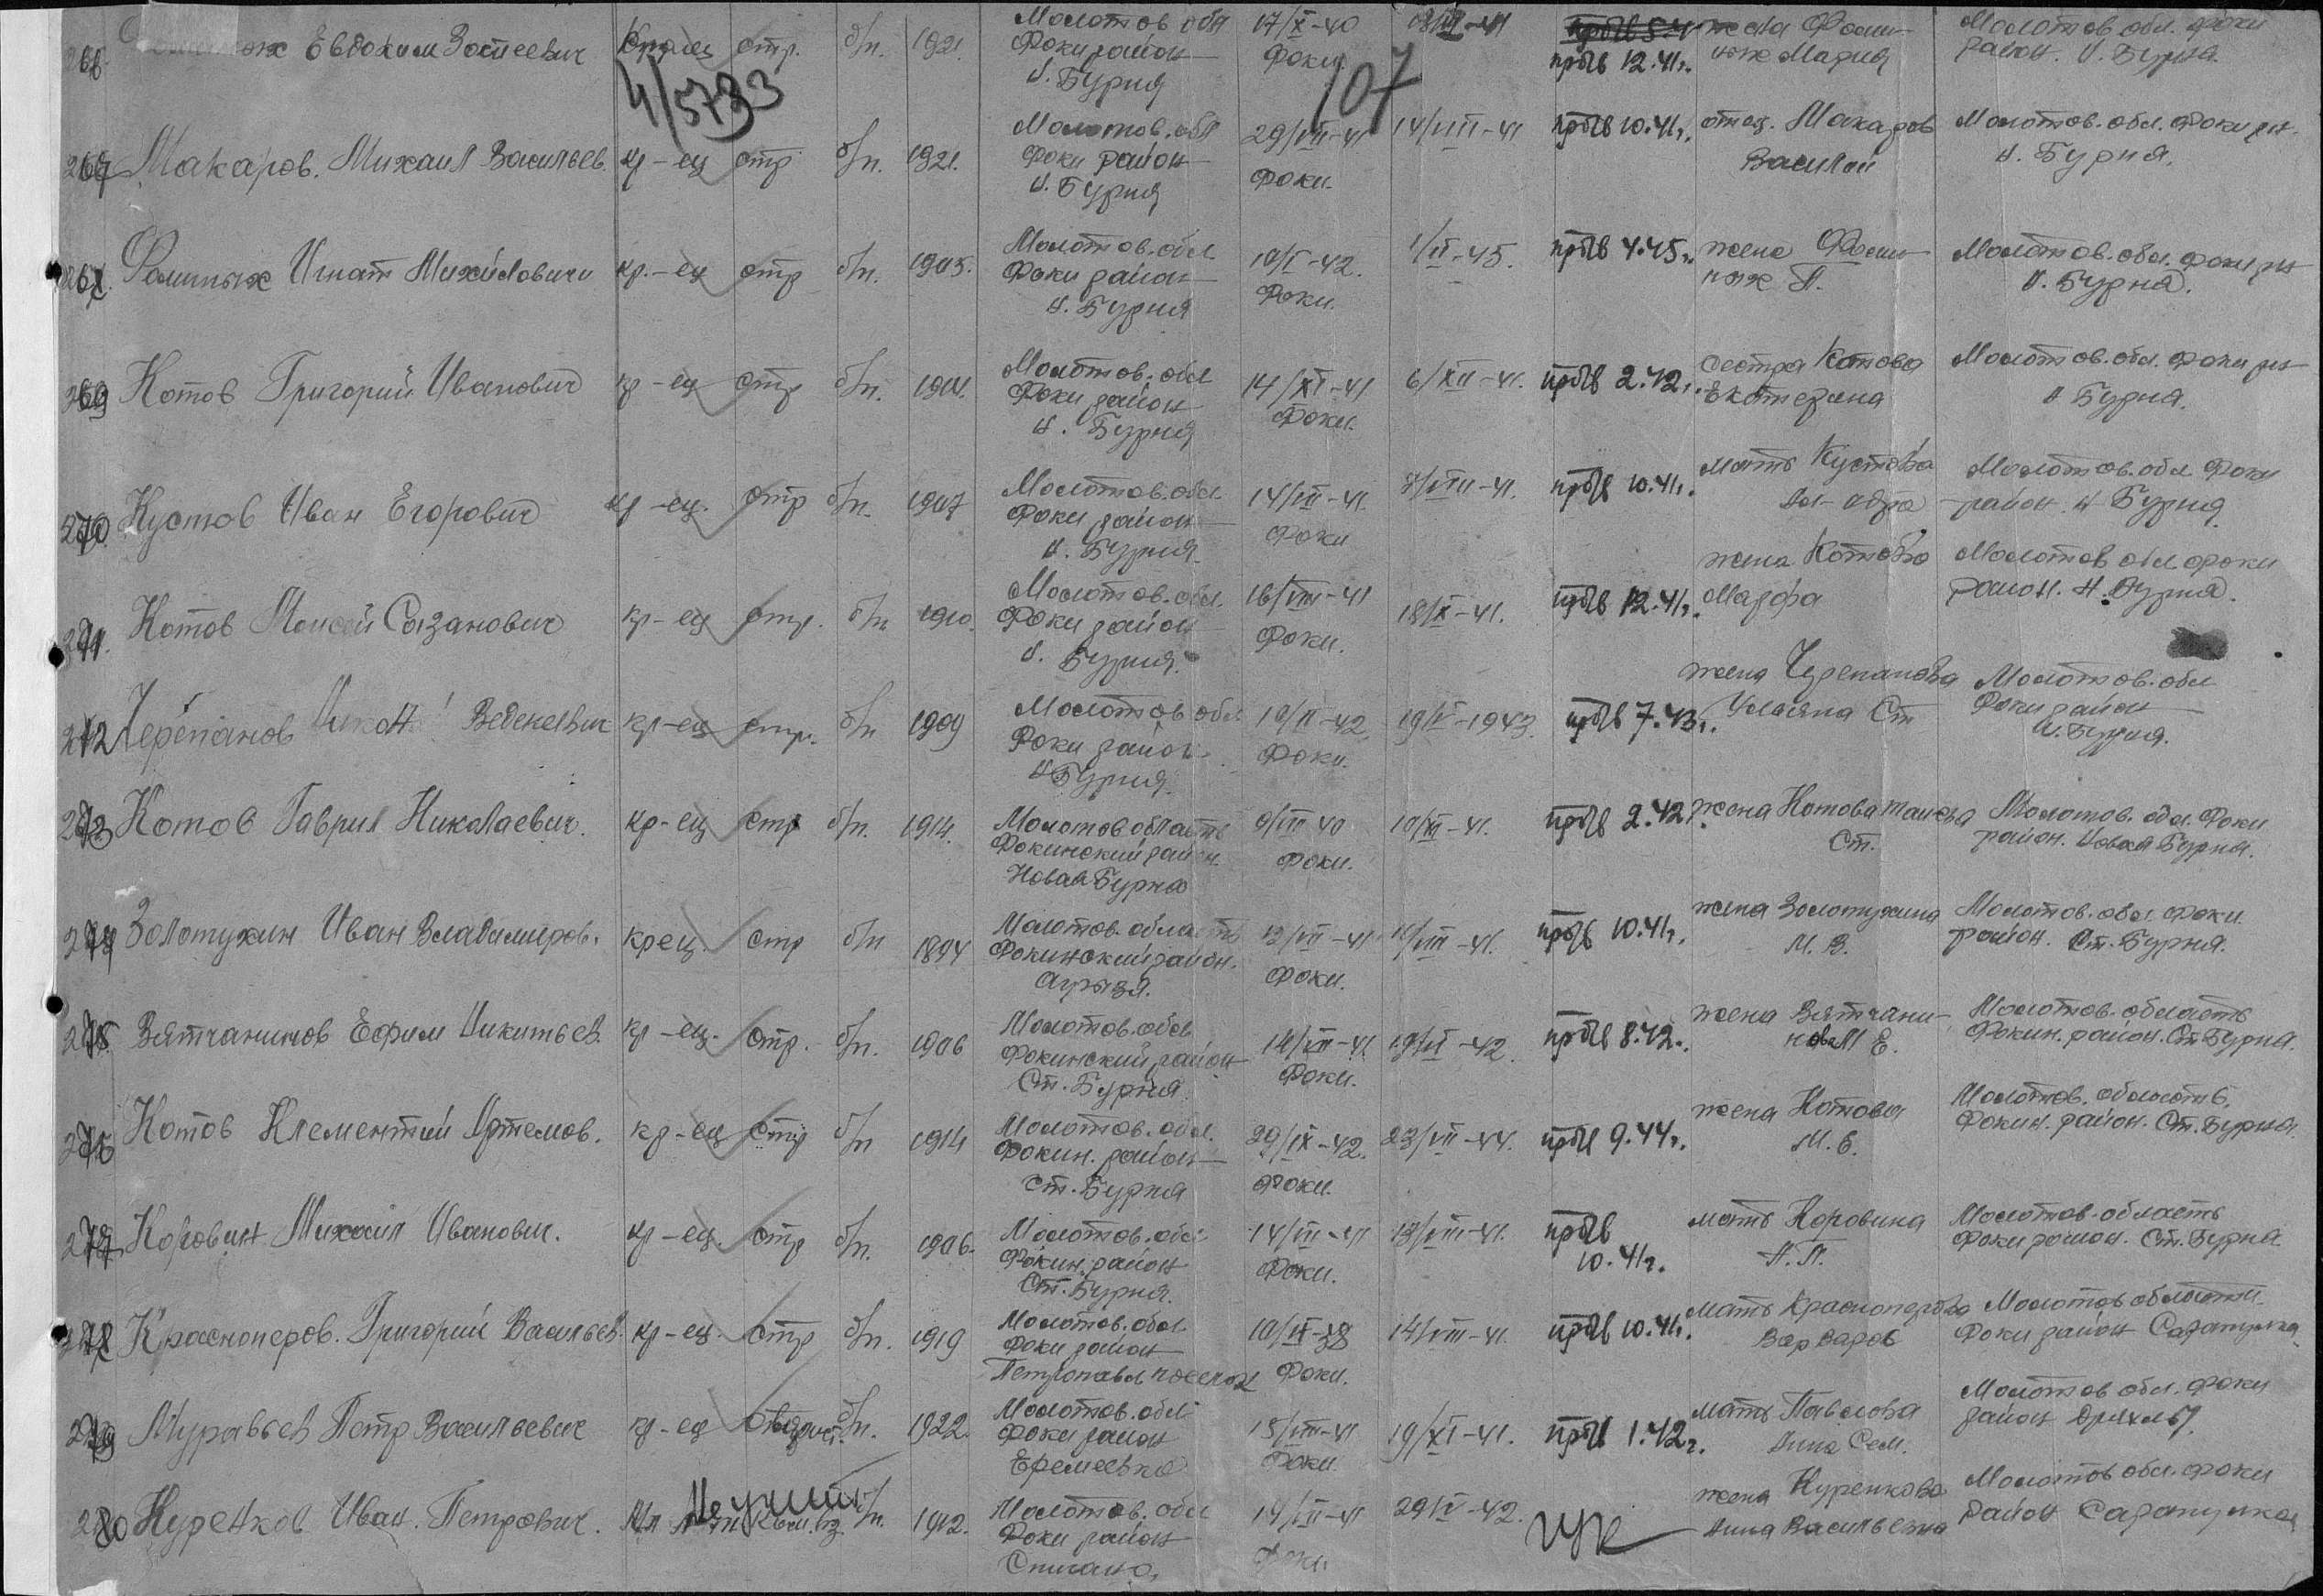 Евдоким стр. б/п. 1921 Молотов обл Фоки район Н. Бурня 17/X-40 Фоки проп. в 12.41г. жена Фоминых Мария Молотов. обл. Фоки район. Н. Бурня.
4/5733
107
267 Макаров. Михаил Васильев. кр-ец стр б/п. 1921. Молотов. обл Фоки район Н. Бурня 29/VII-41 Фоки. 14/VIII-41 проп. в 10.41г. отец. Макаров Василий Молотов. обл. Фоки рн. Н. Бурня.
Фоминых Игнат Михайлович кр.-ец стр б/п. 1905. Молотов. обл Фоки район Н. Бурня 10/I-42. Фоки. проп. в 4.45г. жена Фоминых П. Молотов. обл. Фоки рн Н. Бурня.
269 Котов Григорий Иванович кр-ец стр б/п. Молотов. обл Фоки район Н. Бурня 14/XI-41 Фоки. 6/XII-41. проп. в 2.42г. сестра Котова Екатерина Молотов. обл. Фоки рн Н Бурня.
270. Кустов Иван Егорович кр-ец. стр б/п. 1907 Молотов. обл Фоки район Н. Бурня 14/VII-41. Фоки 8/VIII-41. проп. в 10.41г. мать Кустова Молотов. обл Фоки район. Н Бурня
271. Котов Моисей Сазанович кр-ец стр. б/п 1910. Молотов. обл. Фоки район Н. Бурня. 16/VIII-41 Фоки. 18/X-41. проп. в 12.41г. жена Котова Марфа Молотов обл Фоки район. Н. Бурня.
272 Черепанов Никон Веденеевич кр-ец стр. б/п 1909 Молотов обл Фоки район. Н Бурня. 10/II-42. Фоки. 19/V-1943. проп. в 7.43г. жена Черепанова Ульяна Ст Молотов. обл Фоки район Н. Бурня.
273 Котов Гаврил Николаевич. кр-ец стр б/п. 1914. Молотов область Фокинский район. Новая Бурня Фоки. 10/XI-41. проп. в 2.42г. жена Котова Ст. Молотов. обл. Фоки район. Новая Бурня.
274 Золотухин Иван Владимиров. крец. стр б/п 1894 Молотов. область Фокинский район. 13/VII-41 Фоки. проп. в 10.41г. жена Золотухина М. В. Молотов. обл. Фоки. район. Ст. Бурня.
275. Вятчанинов Ефим Никитьев. кр-ец. стр. б/п. 1906 Молотов. обл. Фокинский район Ст. Бурня. Фоки. проп. в 8.42г. жена Вятчанинова М Е. Молотов. область Фокин. район. Ст Бурня.
276 Котов Клементий Артемов. кр-ец стр б/п 1914 Молотов. обл. Фокин. район Ст. Бурня 29/IX-42. Фоки. 23/VII-44. проп. в 9.44г. жена Котова М. Е. Молотов. область. Фокин. район. Ст. Бурня.
277 Коровин Михаил Иванович. кр-ец. стр б/п. 1906. Молотов. обл. Фокин. район Ст. Бурня. 14/VII-41 Фоки. 13/VIII-41. проп. в 10.41г. мать Коровина П. Молотов. область Фоки район. Ст. Бурня.
278 Красноперов. Григорий Васильев. кр-ец. стр б/п. 1919 Молотов. обл Фоки район Петропавл поселок Фоки. 14/VIII-41. проп. в 10.41г. мать Красноперова Молотов области Фоки район Сарапулка
279 Муравьев Петр Васильевич кр-ец б/п. 1922. Молотов. обл. Фоки район Еремеевка 15/VIII-41 Фоки. 19/XI-41. проп. в 1.42г. мать Павлова Анна Сем. Молотов обл. Фоки район
280 Куренков Иван. Петрович. б/п. 1912. Молотов. обл Фоки район 14/VII-41 Фоки. 29/V-42. жена Куренкова Анна Васильевна Молотов обл. Фоки район Сарапулка